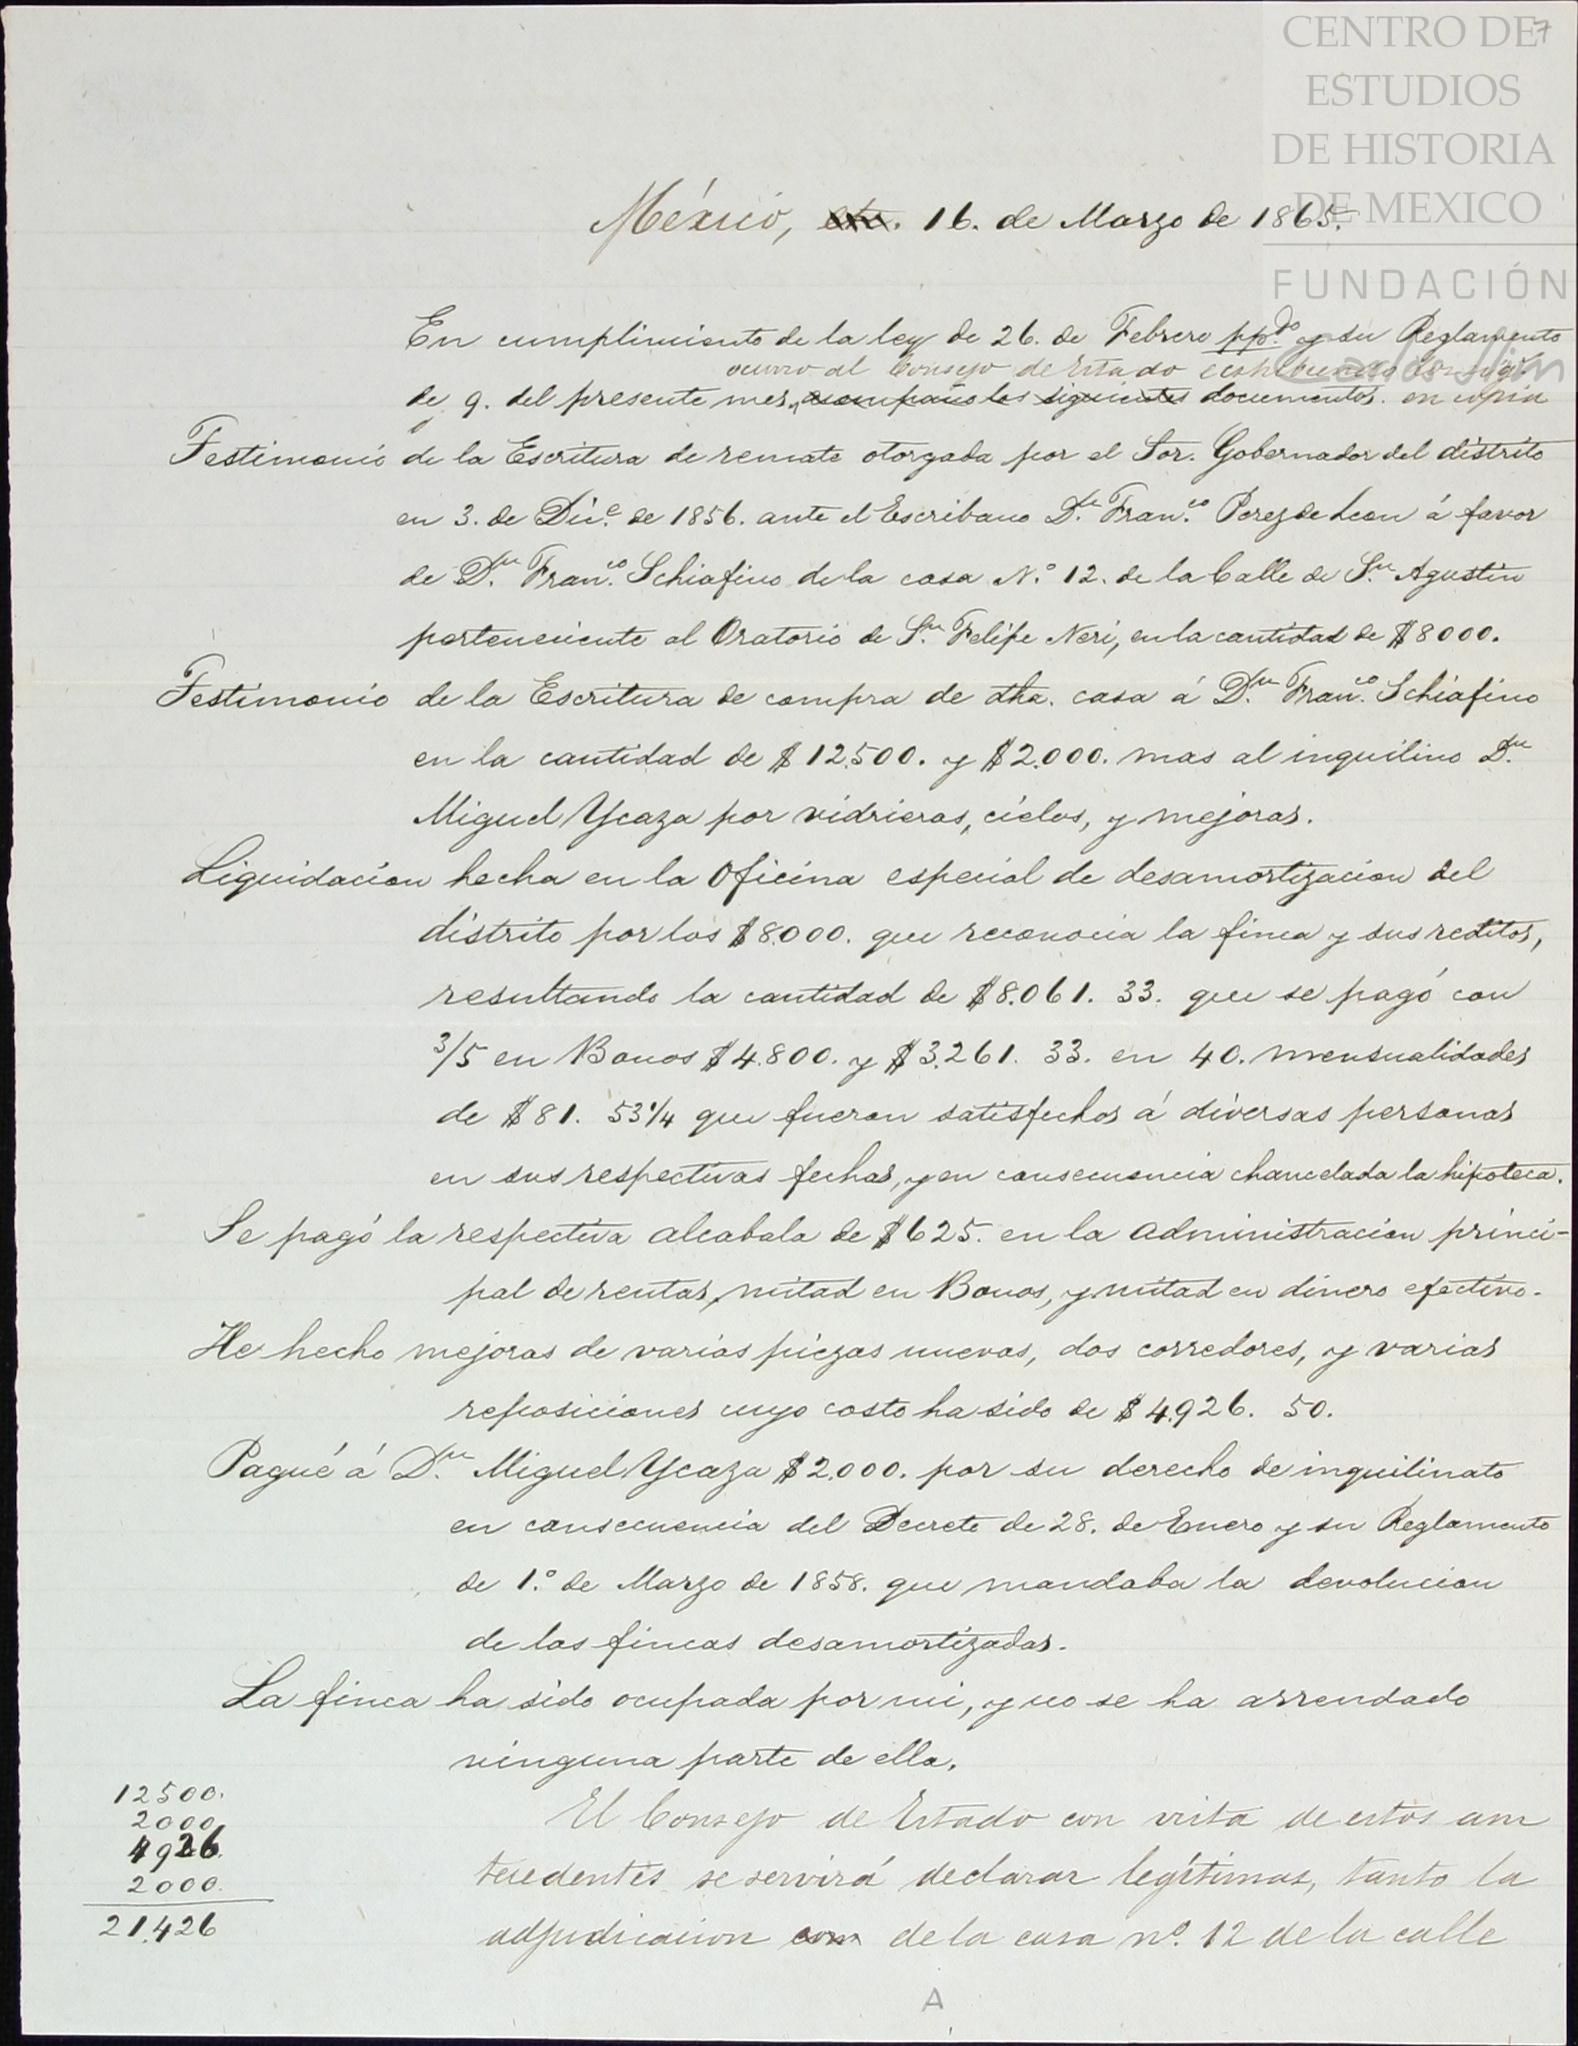 CENTRO DE
ESTUDIOS
DE HISTORIA
DE MEXICO
FUNDACIÓN
Carlos Slim
7
México, etc. 16. de Marzo de 1865.
En cumplimiento de la ley de 26. de Febrero pp.do y su Reglamento
ocurro al Consejo de Estado exhibiendo
de 9. del presente mes, acompaño los siguientes documentos. en copia
Testimonio de la Escritura de remate otorgada por el Sor. Gobernador del distrito
en 3. de Dic.e de 1856. ante el Escribano D.n Fran.co Perez de Leon á favor
de D.n Fran.co Schiafino de la casa N.o 12. de la Calle de S.n Agustin
perteneciente al Oratorio de S.n Felipe Neri, en la cantidad de $8000.
Testimonio de la Escritura de compra de dha. casa á D.n Fran.co Schiafino
en la cantidad de $12.500. y $2.000. mas al inquilino D.n
Miguel Ycaza por vidrieras, cielos, y mejoras.
Liquidacion hecha en la Oficina especial de desamortizacion del
distrito por los $8.000. que reconocia la finca y sus reditos,
resultando la cantidad de $8.061. 33. que se pagó con
3/5 en Bonos $4.800. y $3.261. 33. en 40. mensualidades
de $81. 53 1/4 que fueron satisfechos á diversas personas
en sus respectivas fechas, y en consecuencia chancelada la hipoteca.
Se pagó la respectiva alcabala de $625. en la administracion princi-
pal de rentas, mitad en Bonos, y mitad en dinero efectivo.
He hecho mejoras de varias piezas nuevas, dos corredores, y varias
reposiciones cuyo costo ha sido de $4.926. 50.
Pagué á D.n Miguel Ycaza $2.000. por su derecho de inquilinato
en consecuencia del Decreto de 28. de Enero y su Reglamento
de 1.o de Marzo de 1858. que mandaba la devolucion
de las fincas desamortizadas.
La finca ha sido ocupada por mi, y no se ha arrendado
ninguna parte de ella.
12500.
2000.
4926.
2000.
21.426
El Consejo de Estado con vista de estos an
tecedentes se servirá declarar legítimas, tanto la
adjudicacion com de la casa n.o 12 de la calle
A